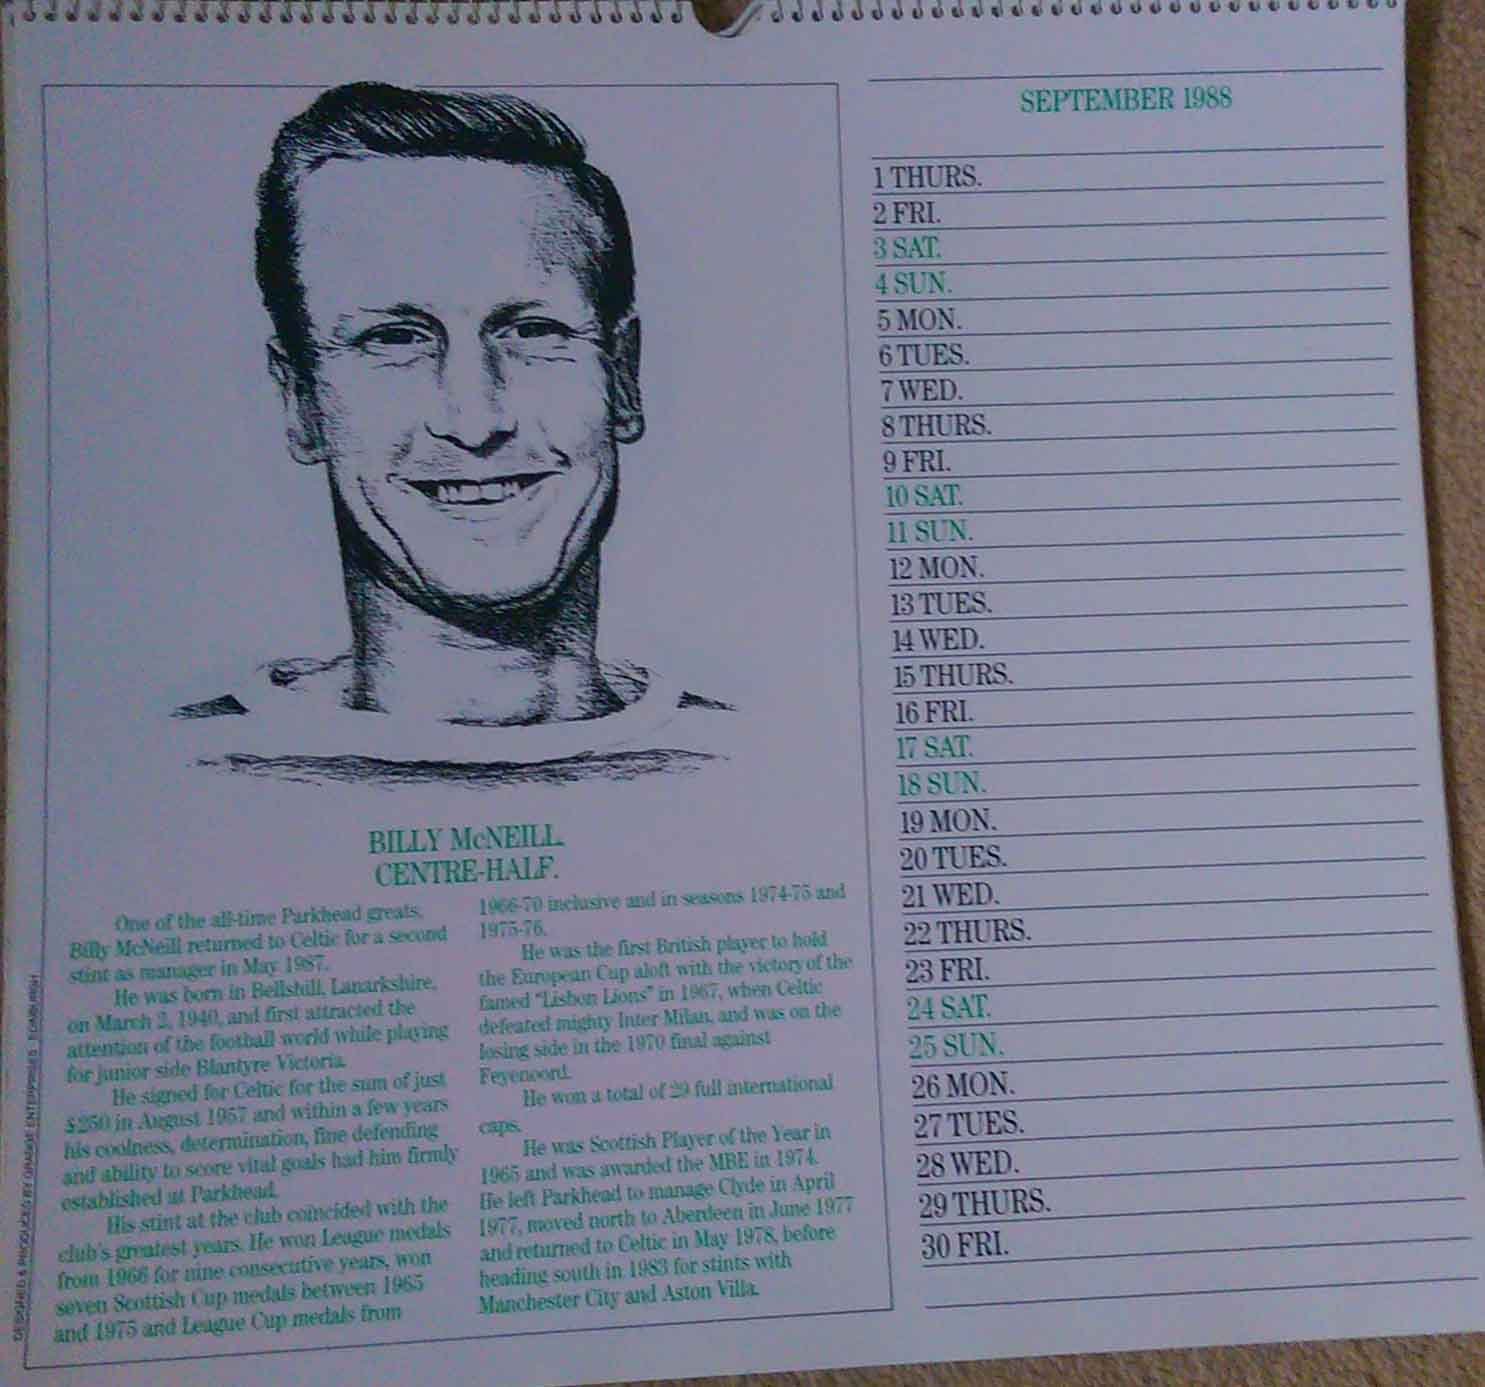 BILLY McNEILL.
CENTRE-HALF.
One of the all-time Parkhead greats,
Billy McNeill returned to Celtic for a second
stint as manager in May 1987.
He was born in Bellshill, Lanarkshire,
on March 2, 1940, and first attracted the
attention of the football world while playing
for junior side Blantyre Victoria.
He signed for Celtic for the sum of just
£250 in August 1957 and within a few years
his coolness, determination, fine defending
and ability to score vital goals had him firmly
established at Parkhead.
His stint at the club coincided with the
club's greatest years. He won League medals
from 1966 for nine consecutive years, won
seven Scottish Cup medals between 1965
and 1975 and League Cup medals from
1966-70 inclusive and in seasons 1974-75 and
1975-76.
He was the first British player to hold
the European Cup aloft with the victory of the
famed "Lisbon Lions" in 1967, when Celtic
defeated mighty Inter Milan, and was on the
losing side in the 1970 final against
Feyenoord.
He won a total of 29 full international
caps.
He was Scottish Player of the Year in
1965 and was awarded the MBE in 1974.
He left Parkhead to manage Clyde in April
1977, moved north to Aberdeen in June 1977
and returned to Celtic in May 1978, before
heading south in 1983 for stints with
Manchester City and Aston Villa.
DESIGNED & PRODUCED BY GRANGE ENTERPRISES EDINBURGH
SEPTEMBER 1988
1 THURS.
2 FRI.
3 SAT.
4 SUN.
5 MON.
6 TUES.
7 WED.
8 THURS.
9 FRI.
10 SAT.
11 SUN.
12 MON.
13 TUES.
14 WED.
15 THURS.
16 FRI.
17 SAT.
18 SUN.
19 MON.
20 TUES.
21 WED.
22 THURS.
23 FRI.
24 SAT.
25 SUN.
26 MON.
27 TUES.
28 WED.
29 THURS.
30 FRI.